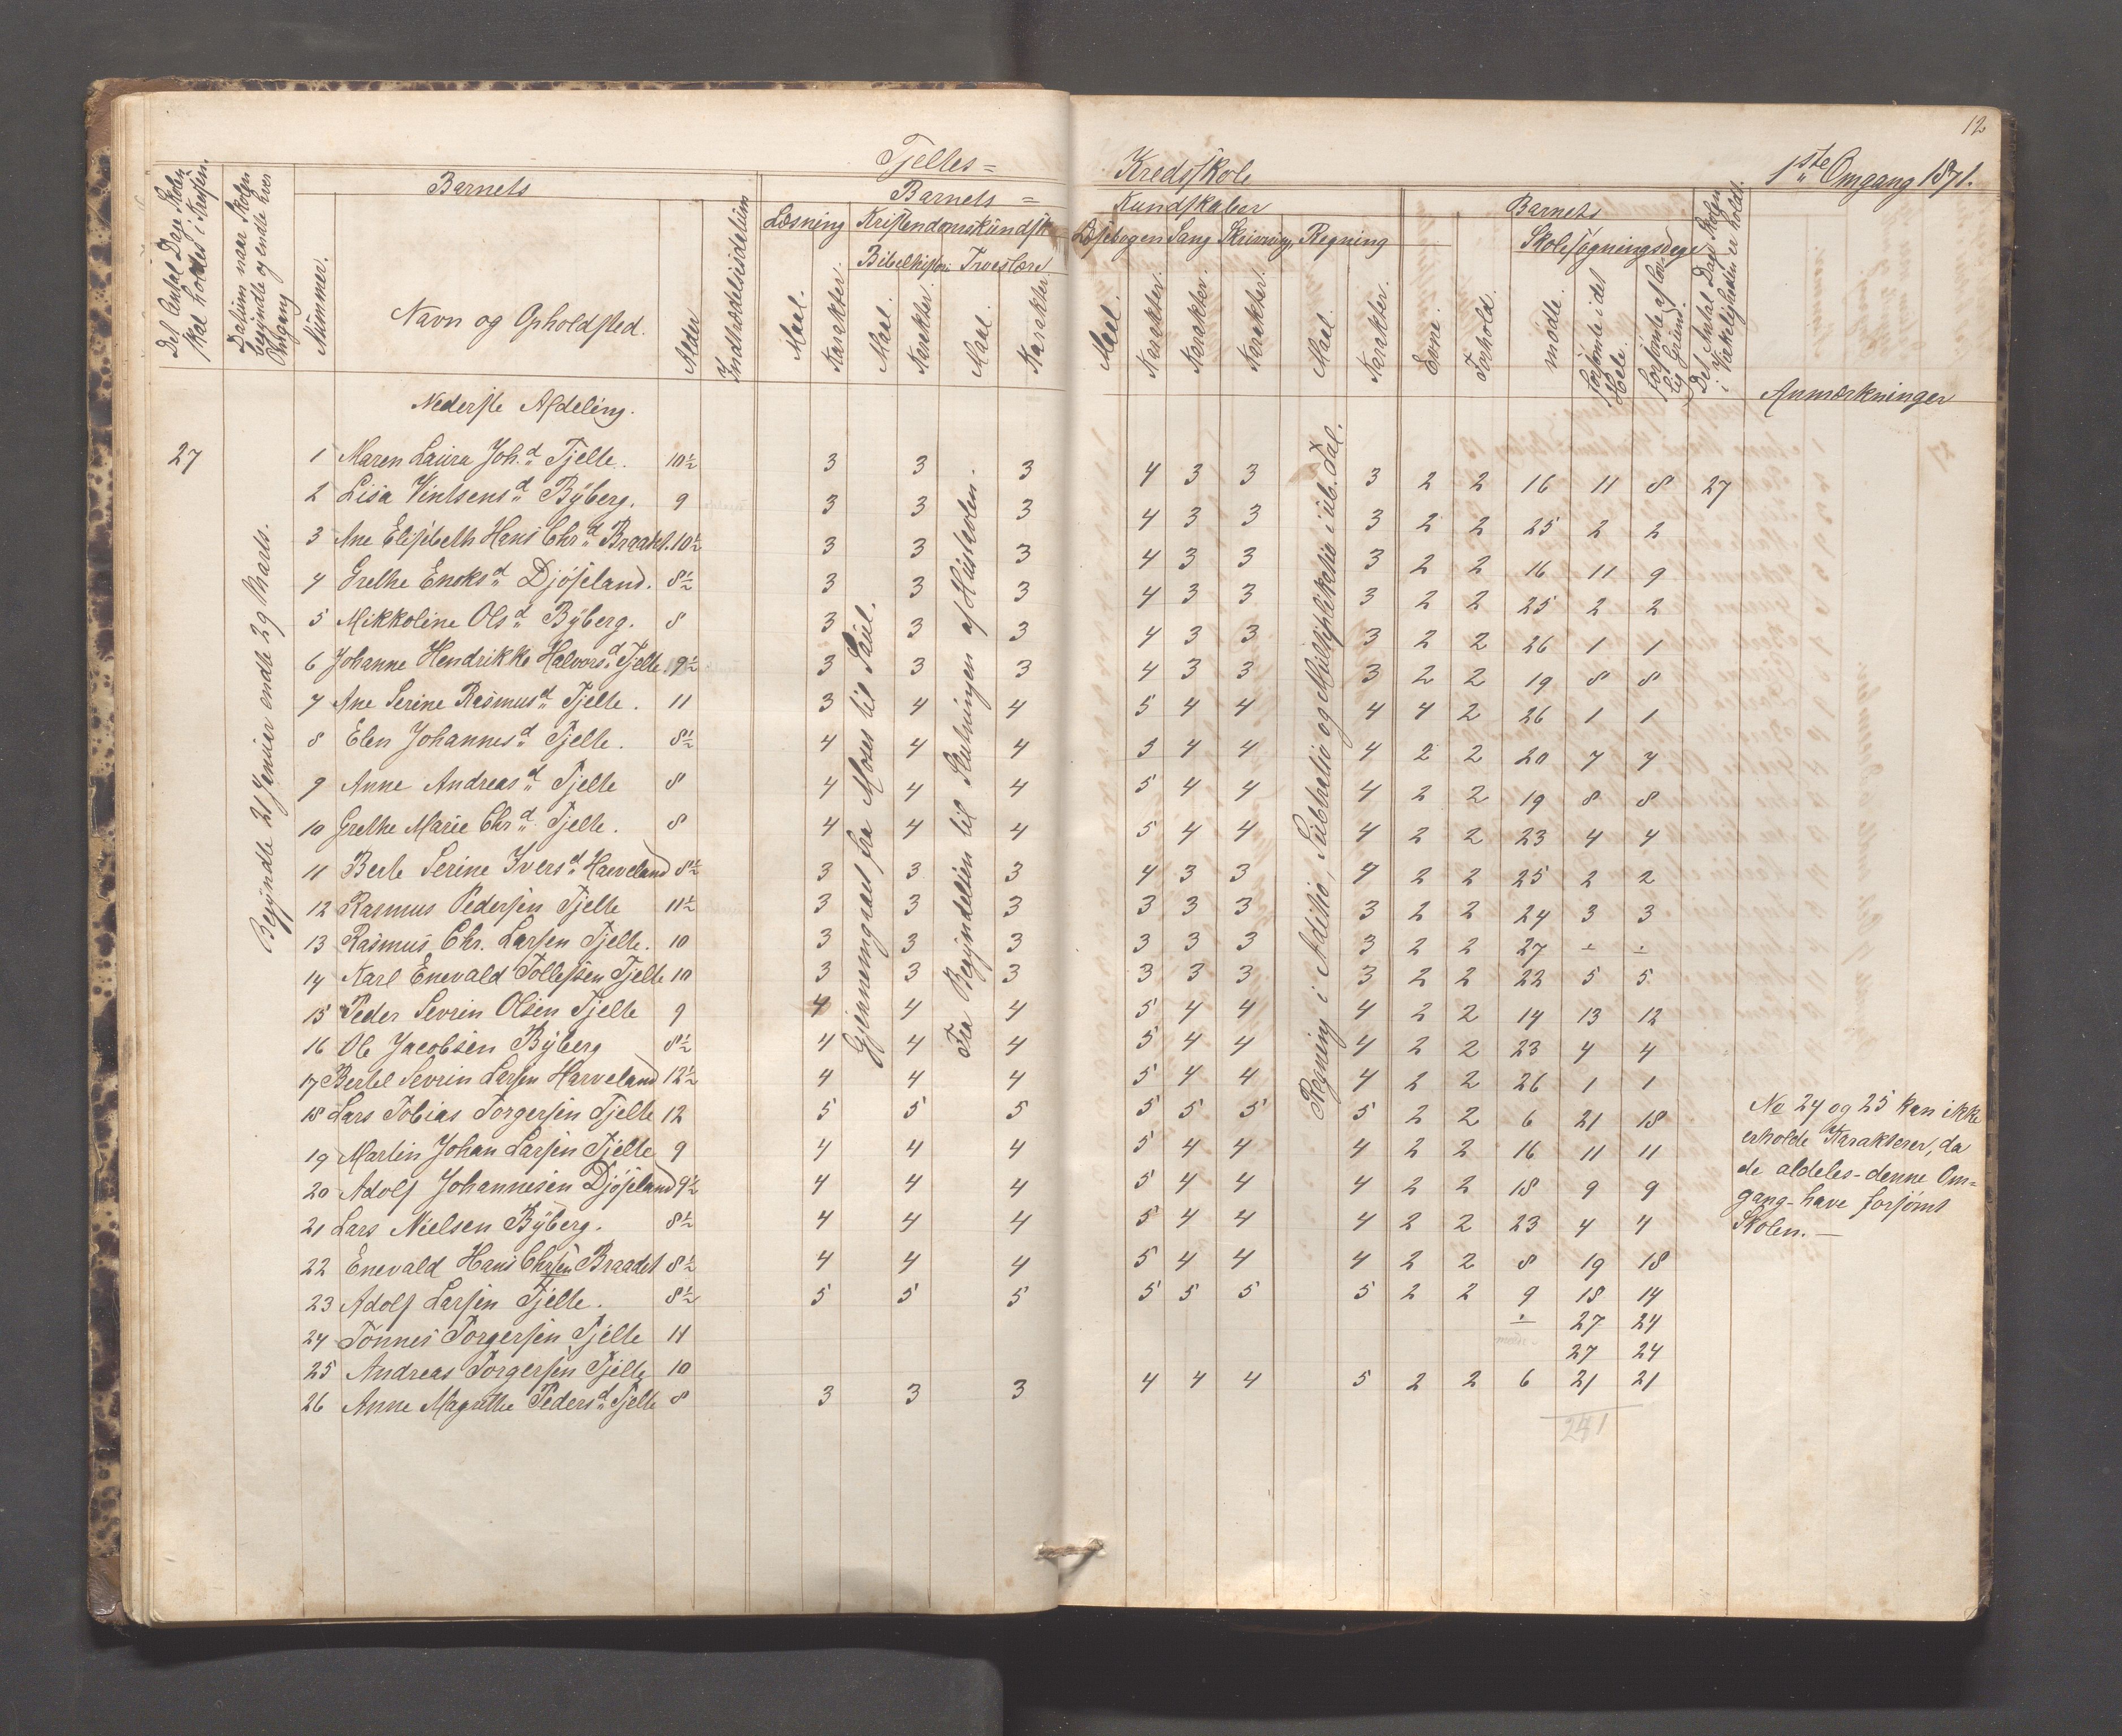 12
Tjeltes= Kredsskole 1ste Omgang 1871.
Det Antal Dage Skolen skal holdes i Kredsen.
Datum naar Skolen begyndte og endte hver Omgang
Barnets
Nummer.
Navn og Opholdsted.
Alder
Indtrædelsesdatum
Barnets = Kundskaber
Læsning
Kristendomskundsk
Bibelhistori
Troeslære
Læsebogen Sang Skrivning Regning
Maal. Karakter. Maal. Karakter. Maal. Karakter.
Maal. Karakter. Karakter. Karakter. Maal. Karakter.
Barnets
Evne. Forhold.
Skolesøgningsdage
mødte. forsømte i det Hele. forsømte af lovlig Grund.
Det Antal Dage Skolen i Virkeligheden er holdt.
Anmærkninger
Nederste Afdeling.
Begyndte 21 Januar endte 29 Marts.
Gjennemgaaet fra Moses til Saul.
Fra Begyndelsen til Slutningen af Hustavlen.
Regning i Aditio, Subtratio og Multiplikatio i ub. Tal.
27 1 Maren Laura Joh.d Tjelte. 10½ 3 3 3 4 3 3 3 2 2 16 11 8 27
2 Lisa Vintsensd Byberg. 9 3 3 3 4 3 3 3 2 2 25 2 2
3 Ane Elisebeth Hans Chrd Braadet. 10½ 3 3 3 4 3 3 3 2 2 16 11 9
4 Grethe Enoksd Djøseland. 8½ 3 3 3 4 3 3 3 2 2 25 2 2
5 Mikkoline Olsd Byberg. 8 3 3 3 4 3 3 3 2 2 26 1 1
6 Johanne Hendrikke Halvorsd Tjelte 9½ 3 3 3 4 3 3 3 2 2 19 8 8
7 Ane Serine Rasmusd Tjelte. 11 3 4 4 5 4 4 4 4 2 26 1 1
8 Elen Johannesd Tjelte. 8½ 4 4 4 3 4 4 4 2 2 20 7 7
9 Anne Andreasd Tjelte 8 4 4 4 5 4 4 4 2 2 19 8 8
10 Grethe Marie Chrd Tjelte. 8 4 4 4 5 4 4 4 2 2 23 4 4
11 Berte Serine Iversd Harveland 8½ 3 3 3 4 3 3 4 2 2 25 2 2
12 Rasmus Pedersen Tjelte 11½ 3 3 3 3 3 3 3 2 2 24 3 3
13 Rasmus Chr. Larsen Tjelte. 10 3 3 3 3 3 3 3 2 2 27 ÷ ÷
14 Karl Enevald Tollefsen Tjelte 10 3 3 3 3 3 3 3 2 2 22 5 5
15 Peder Sevrin Olsen Tjelte 9 4 4 4 5 4 4 4 2 2 14 13 12
16 Ole Jacobsen Byberg 8½ 4 4 4 5 4 4 4 2 2 23 4 4
17 Bertel Sevrin Larsen Harveland 12½ 4 4 4 5 4 4 4 2 2 26 1 1
18 Lars Tobias Torgersen Tjelte 12 5 5 5 5 5 5 5 2 2 6 21 18
19 Martin Johan Larsen Tjelte 9 4 4 4 5 4 4 4 2 2 16 11 11
20 Adolf Johannesen Djøseland 9½ 4 4 4 5 4 4 4 2 2 18 9 9
21 Lars Nielsen Byberg. 8½ 4 4 4 5 4 4 4 2 2 23 4 4
22 Enevald Hans Chrsen Braadet 8½ 4 4 4 5 4 4 4 2 2 8 19 18
23 Adolf Larsen Tjelte. 8½ 5 5 5 5 5 5 5 2 2 9 18 14
24 Tønnes Torgersen Tjelte 11 ÷ 27 24
25 Andreas Torgersen Tjelte 10 27 24
26 Anne Magrethe Pedersd Tjelte 8 3 3 3 4 4 4 5 2 2 6 21 21
241
No 24 og 25 kan ikke
erholde Karakterer, da
de aldeles - denne Om=
gang - have forsømt
Skolen. —